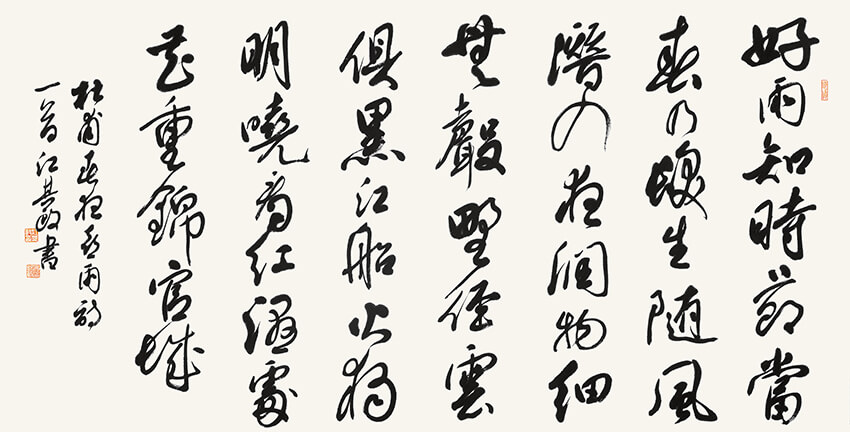 好雨知時節當
春乃發生随風
潛入夜潤物細
無聲野徑雲
俱黑江船火獨
明曉看紅濕處
花重錦官城
杜甫春夜喜雨詩
一首江其書